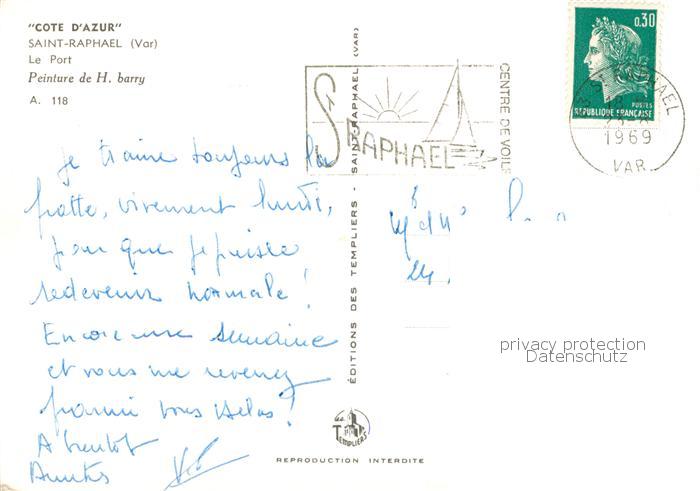 "COTE D'AZUR"
SAINT-RAPHAEL (Var)
Le Port
Peinture de H. barry
A. 118
Je traine toujours la
patte, vivement lundi,
pour que je puisse
redevenir normale !
Encore une semaine
et vous me revenez
parmi vous hélas !
A bientôt
Amitiés
ST RAPHAEL
CENTRE DE VOILE
0,30
POSTES
REPUBLIQUE FRANÇAISE
RAPHAEL
1969
VAR
EDITIONS DES TEMPLIERS - SAINT-RAPHAEL (VAR)
les
TEMPLIERS
REPRODUCTION INTERDITE
privacy protection
Datenschutz